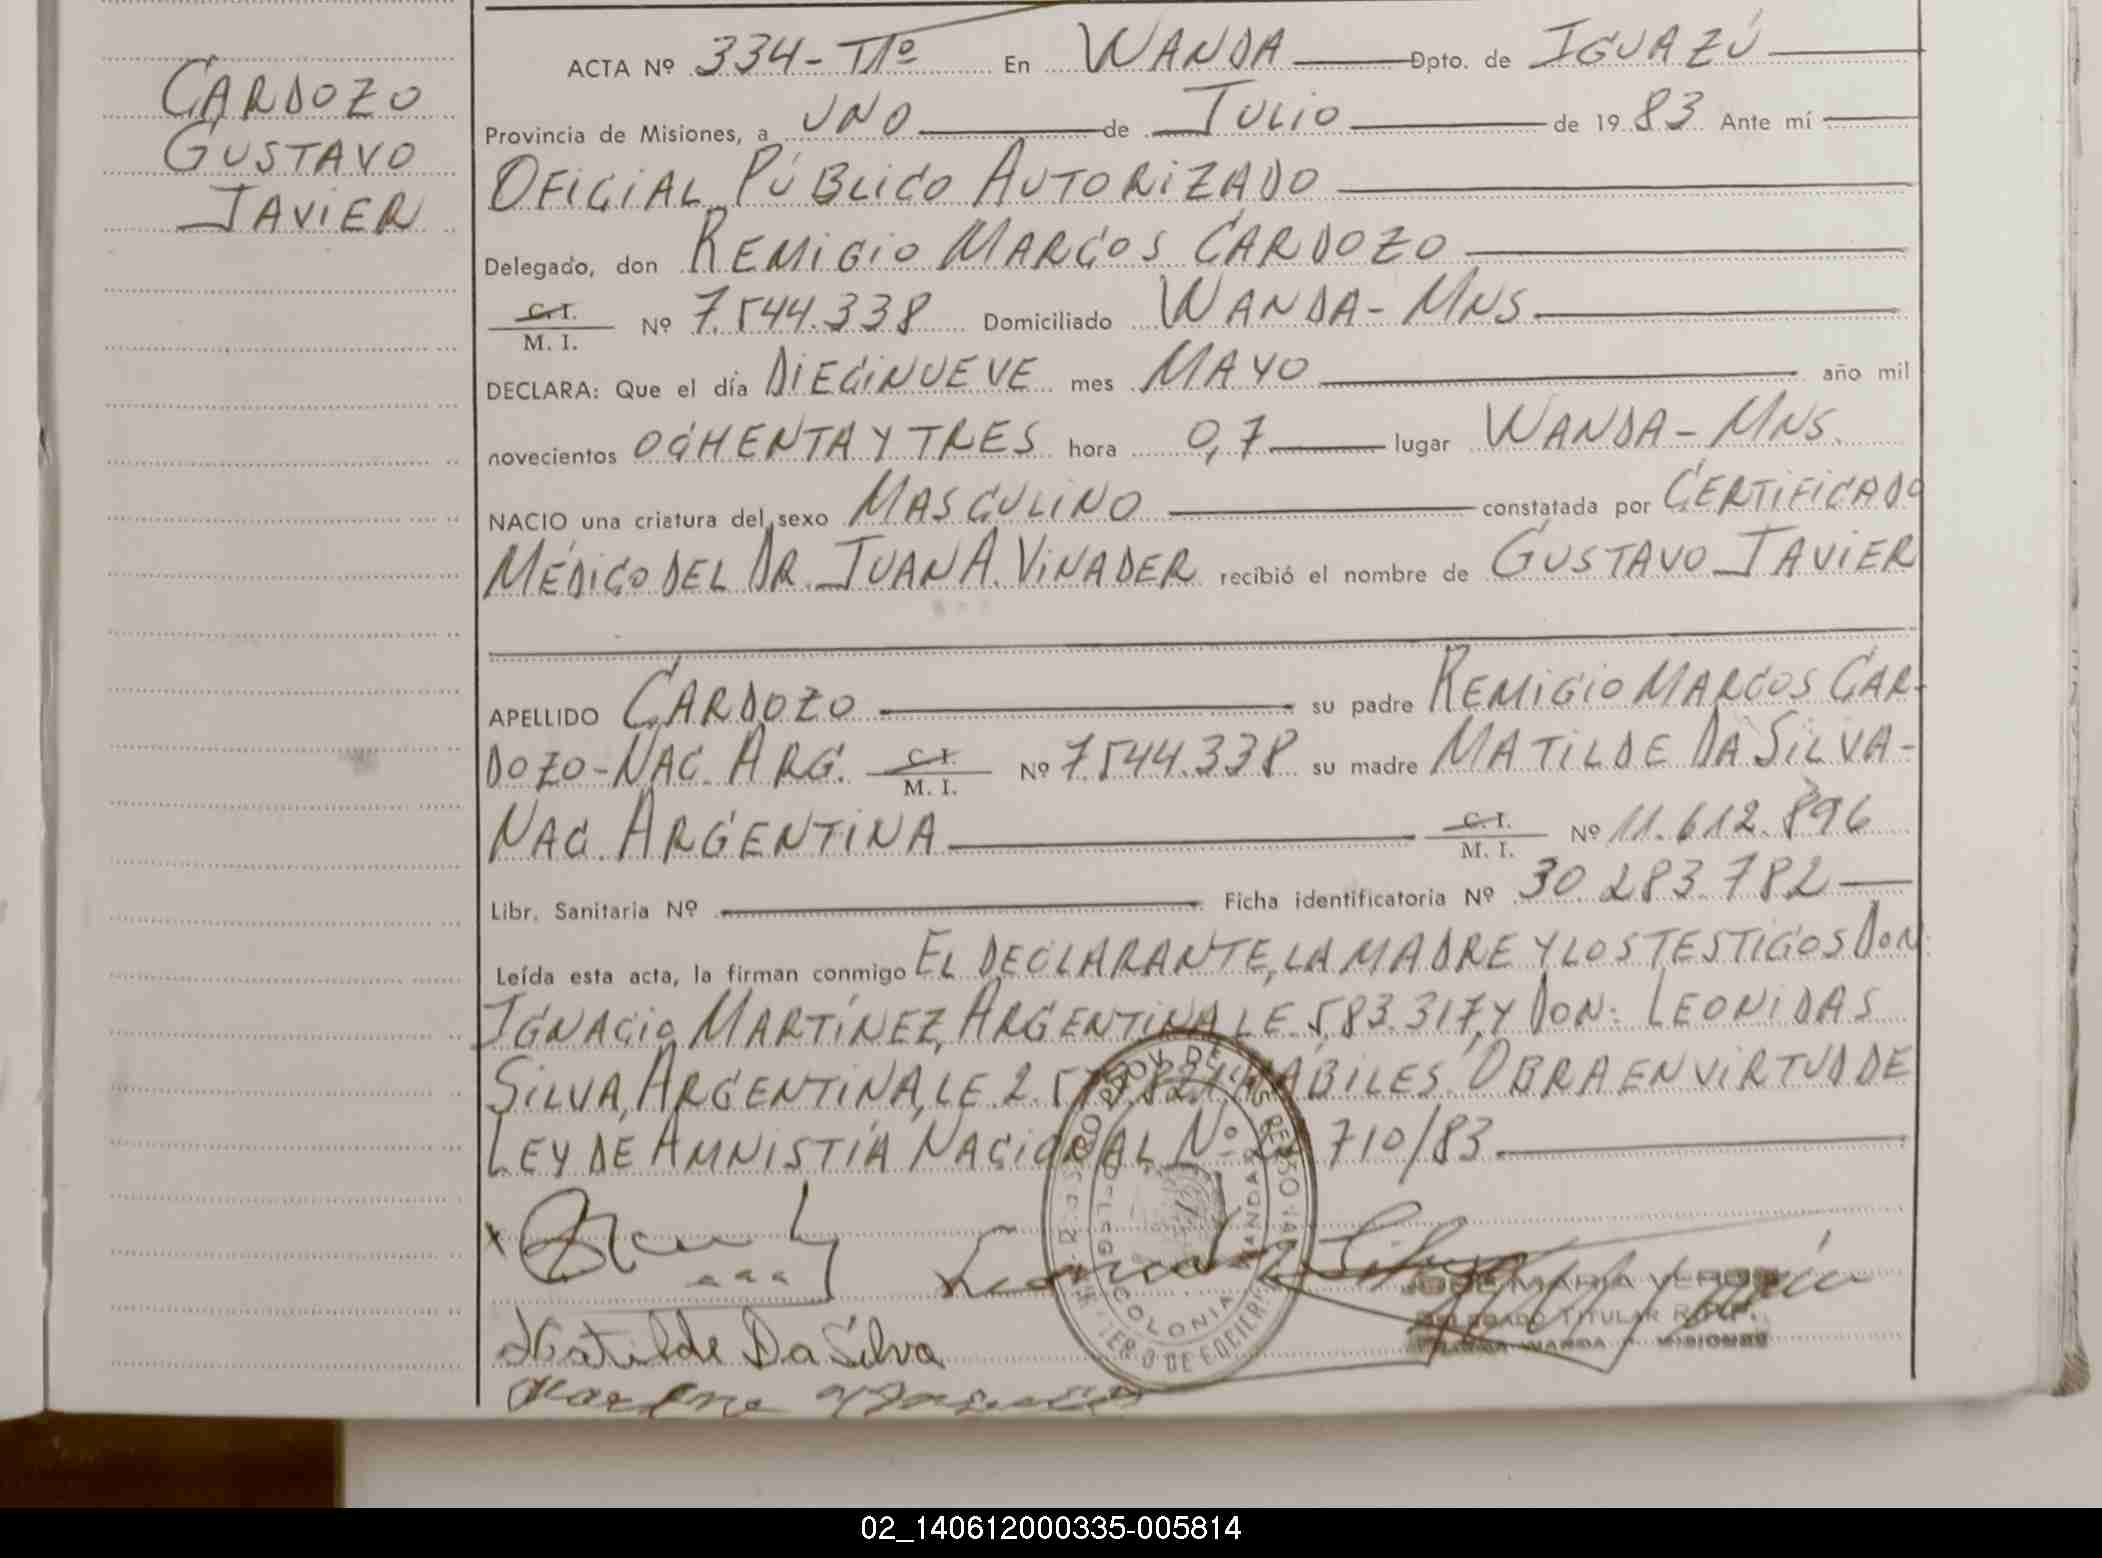 CARDOZO
GUSTAVO
JAVIER
ACTA Nº 334-TIIº En WANDA Dpto. de IGUAZÚ
Provincia de Misiones, a UNO de JULIO de 1983 Ante mí
OFICIAL PÚBLICO AUTORIZADO
Delegado, don REMIGIO MARCOS CARDOZO
C.I.
M. I. Nº 7.544.338 Domiciliado WANDA-MNS
DECLARA: Que el día DIECINUEVE mes MAYO año mil
novecientos OCHENTA Y TRES hora 0,7 lugar WANDA-MNS.
NACIO una criatura del sexo MASCULINO constatada por CERTIFICADO
MÉDICO DEL DR. JUAN A. VINADER recibió el nombre de GUSTAVO JAVIER
APELLIDO CARDOZO su padre REMIGIO MARCOS CAR-
DOZO-NAC. ARG. C.I.
M. I. Nº 7.544.338 su madre MATILDE DA SILVA-
NAC. ARGENTINA C.I.
M. I. Nº 11.612.896
Libr. Sanitaria Nº Ficha identificatoria Nº 30.283.782
Leída esta acta, la firman conmigo EL DECLARANTE, LA MADRE Y LOS TESTIGOS DON:
IGNACIO MARTÍNEZ, ARGENTINA, LE 583.317, Y DON: LEONIDAS
SILVA, ARGENTINA, LE 2. HÁBILES. OBRA EN VIRTUD DE
LEY DE AMNISTÍA NACIONAL Nº 710/83.
COLONIA WANDA
JOSE MARIA
DELEGADO TITULAR R.P.P.
COLONIA WANDA - MISIONES
Matilde Da Silva
02_140612000335-005814